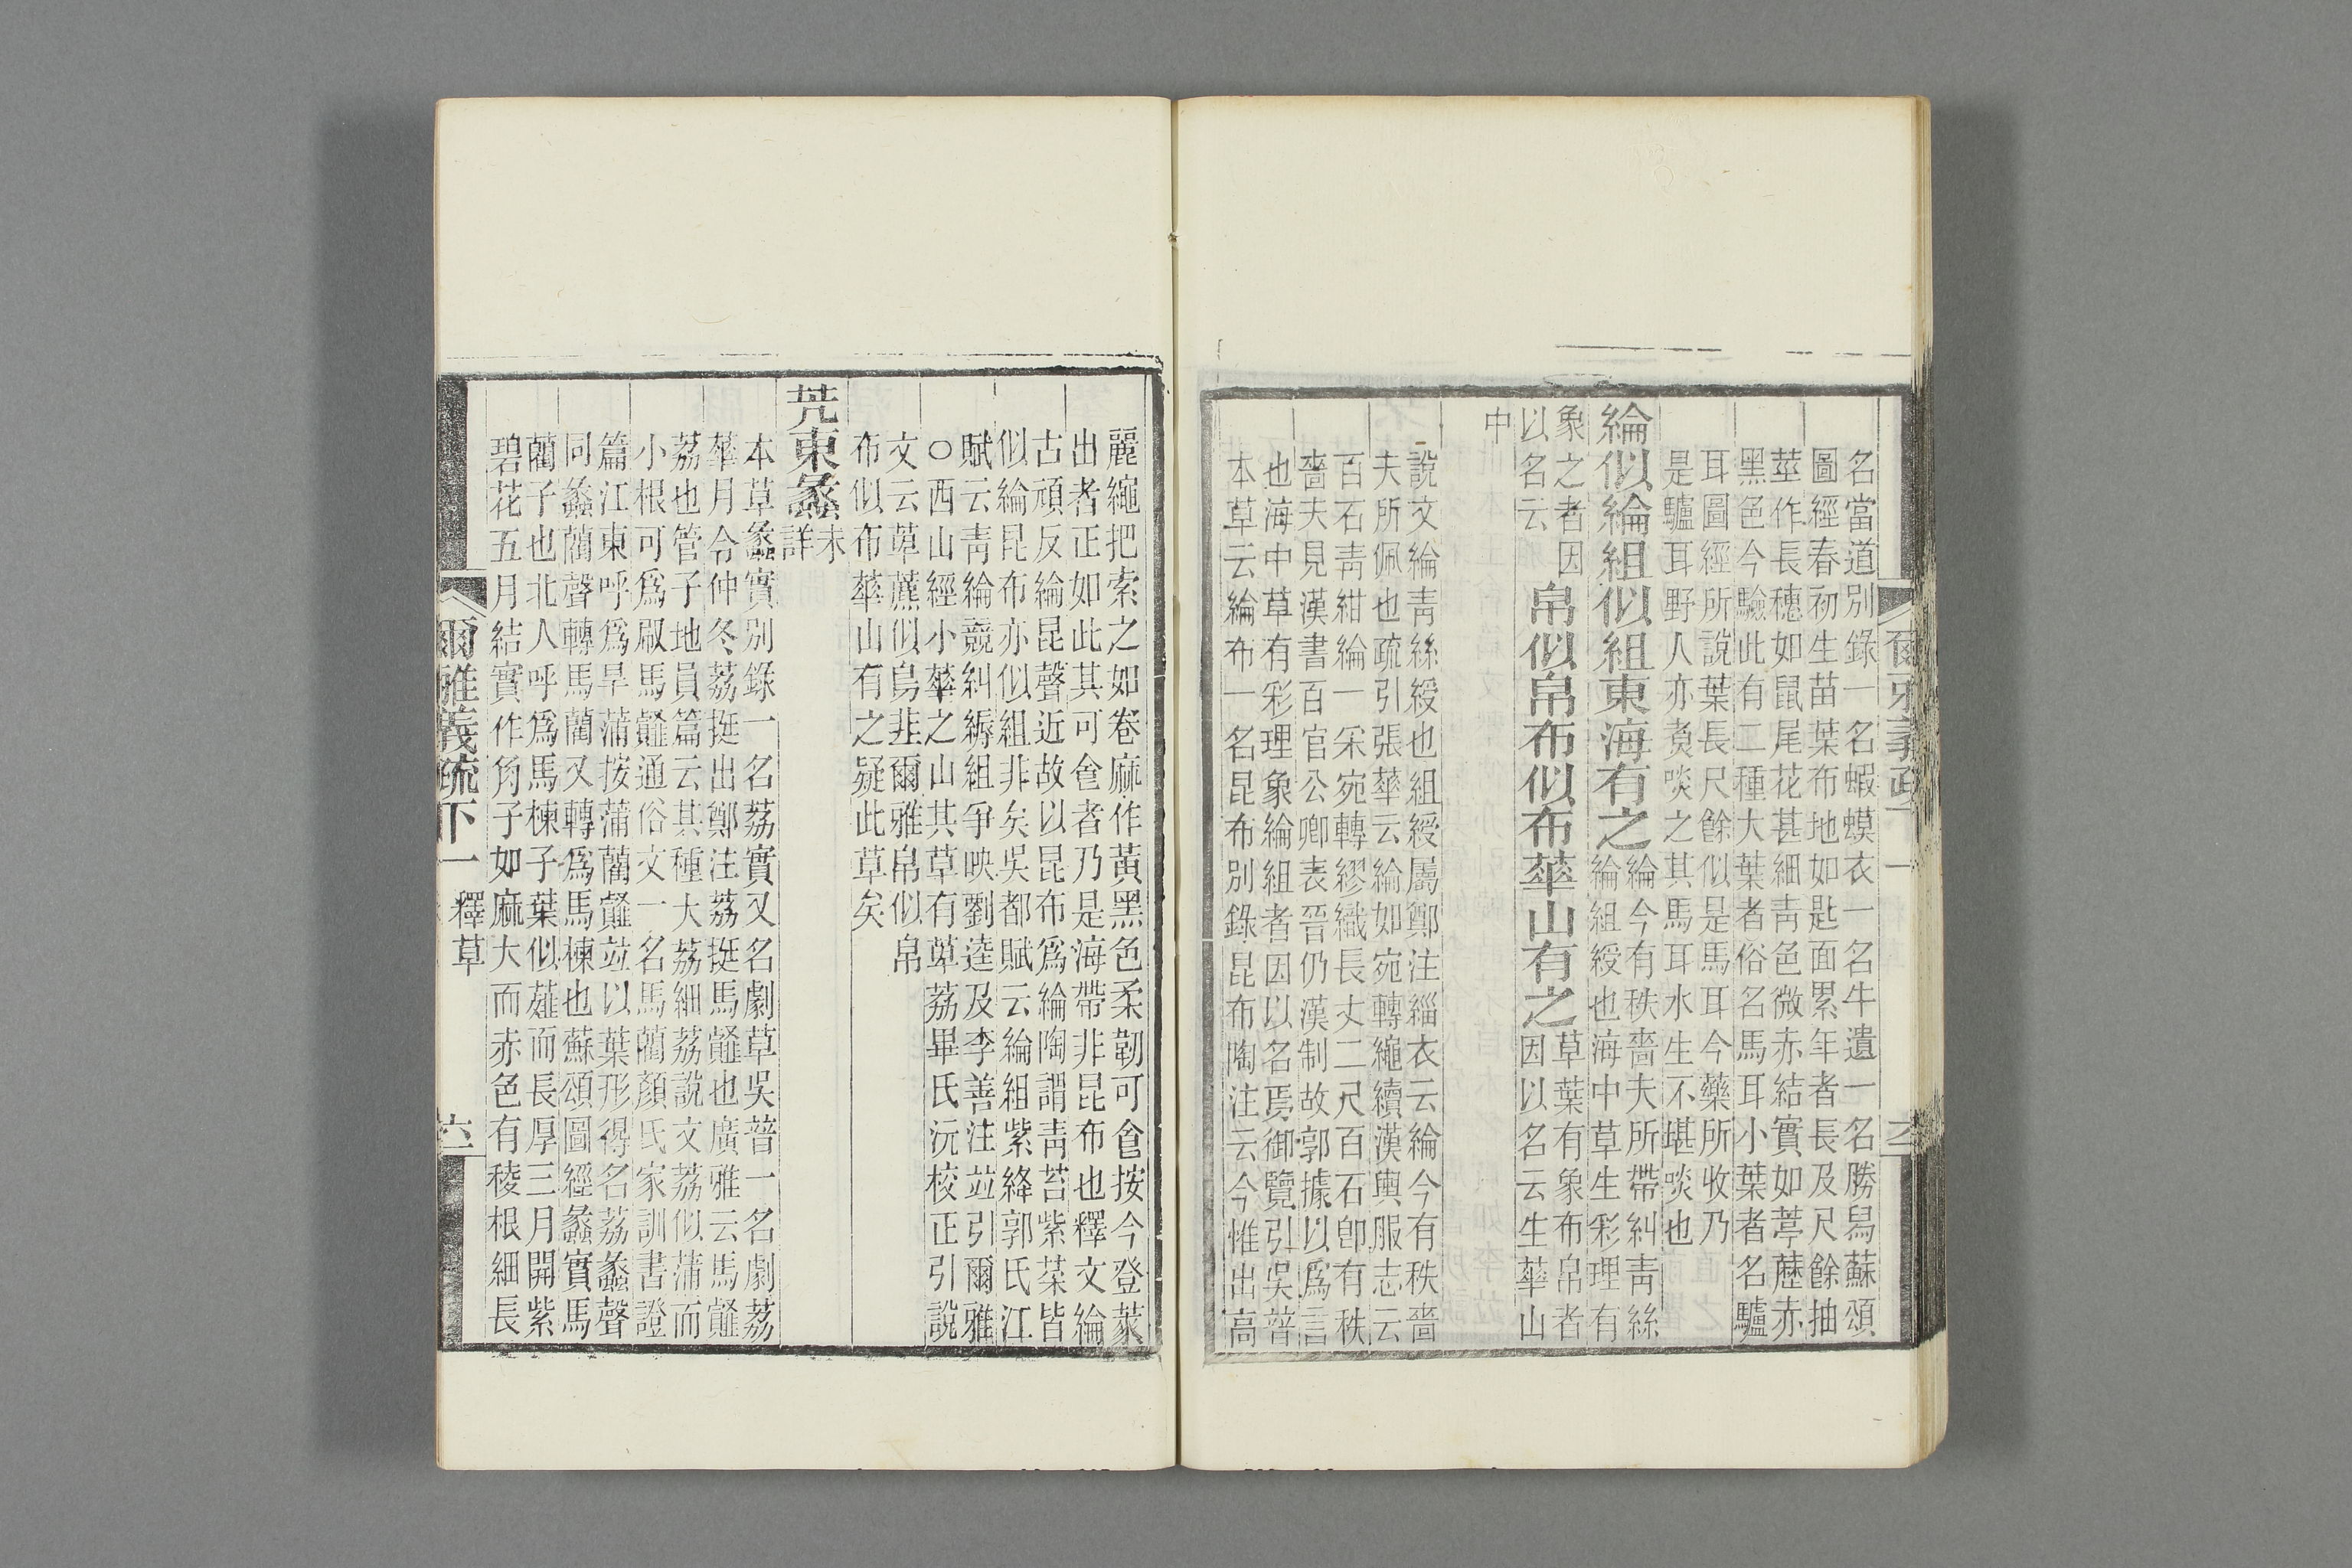 名當道別錄一名蝦蟆衣一名牛遺一名勝舄蘇頌
圖經春初生苗葉布地如匙面累年者長及尺餘抽
莖作長穗如鼠尾花甚細靑色微赤結實如葶藶赤
黑色今驗此有二種大葉者俗名馬耳小葉者名驢
耳圖經所說葉長尺餘似是馬耳今藥所收乃
是驢耳野人亦煑啖之其馬耳水生不堪啖也
綸似綸組似組東海有之
綸今有秩嗇夫所帶糾靑絲
綸組綬也海中草生彩理有
象之者因
以名云
帛似帛布似布華山有之
草葉有象布帛者
因以名云生華山
中
說文綸靑絲綬也組綬屬鄭注緇衣云綸今有秩嗇
夫所佩也疏引張華云綸如宛轉繩續漢輿服志云
百石靑紺綸一采宛轉繆織長丈二尺百石卽有秩
嗇夫見漢書百官公卿表晉仍漢制故郭據以爲言
也海中草有彩理象綸組者因以名焉御覽引吳普
本草云綸布一名昆布別錄昆布陶注云今惟出高
麗繩把索之如卷麻作黃黑色柔韌可食按今登萊
出者正如此其可食者乃是海帶非昆布也釋文綸
古頑反綸昆聲近故以昆布爲綸陶謂靑苔紫菜皆
似綸昆布亦似組非矣吳都賦云綸組紫絳郭氏江
賦云靑綸競糾縟組爭映劉逵及李善注竝引爾雅
○西山經小華之山其草有萆荔畢氏沅校正引說
文云萆藨似烏韭爾雅帛似帛
布似布華山有之疑此草矣
芫東蠡
未
詳
本草蠡實別錄一名荔實又名劇草吳普一名劇荔
華月令仲冬荔挺出鄭注荔挺馬䪥也廣雅云馬䪥
荔也管子地員篇云其種大荔細荔說文荔似蒲而
小根可爲㕞馬䪥通俗文一名馬藺顏氏家訓書證
篇江東呼爲旱蒲按蒲藺䪥竝以葉形得名荔蠡聲
同蠡藺聲轉馬藺又轉爲馬楝也蘇頌圖經蠡實馬
藺子也北人呼爲馬楝子葉似薤而長厚三月開紫
碧花五月結實作角子如麻大而赤色有稜根細長
爾雅義疏下一
釋草